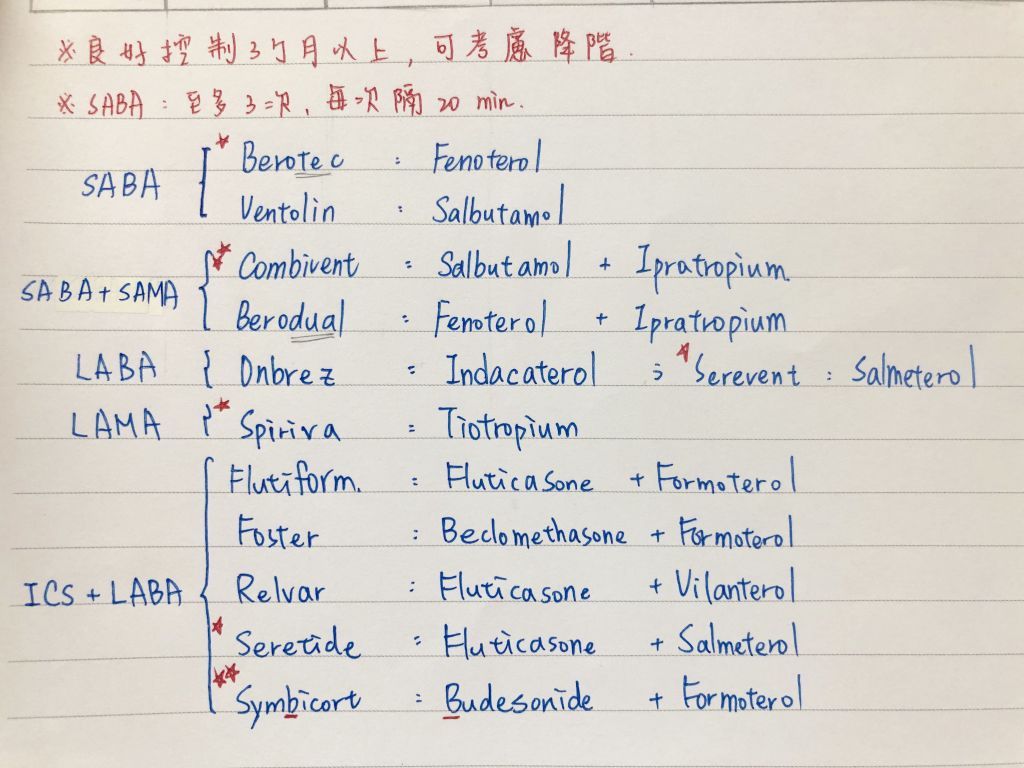 ※良好控制3个月以上,可考慮降階.
※SABA:至多3次,每次隔20 min.
SABA
★Berotec : Fenoterol
Ventolin : Salbutamol
SABA+SAMA
★Combivent : Salbutamol + Ipratropium.
Berodual : Fenoterol + Ipratropium
LABA { Onbrez : Indacaterol ; ★Serevent : Salmeterol
LAMA } ★Spiriva : Tiotropium
ICS + LABA
Flutiform. : Fluticasone + Formoterol
Foster : Beclomethasone + Formoterol
Relvar : Fluticasone + Vilanterol
★Seretide : Fluticasone + Salmeterol
★★Symbicort : Budesonide + Formoterol